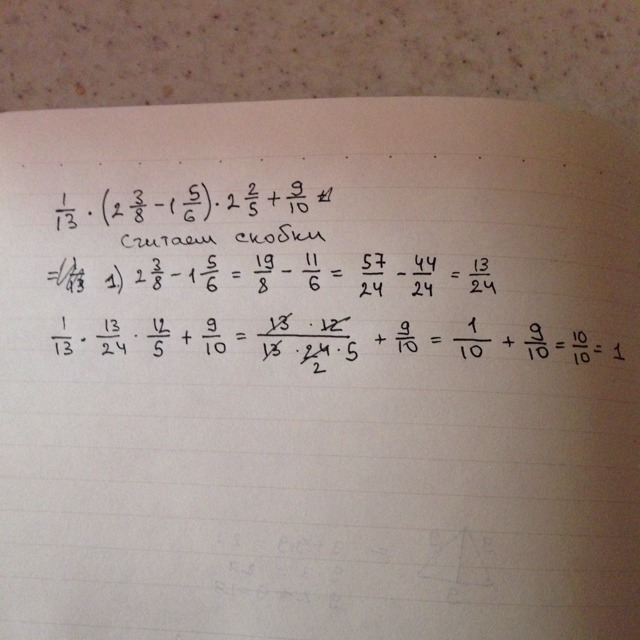 1/13 · (2 3/8 - 1 5/6) · 2 2/5 + 9/10
Считаем скобки
= 1) 2 3/8 - 1 5/6 = 19/8 - 11/6 = 57/24 - 44/24 = 13/24
1/13 · 13/24 · 12/5 + 9/10 = 13 · 12 / 13 · 24 2 · 5 + 9/10 = 1/10 + 9/10 = 10/10 = 1